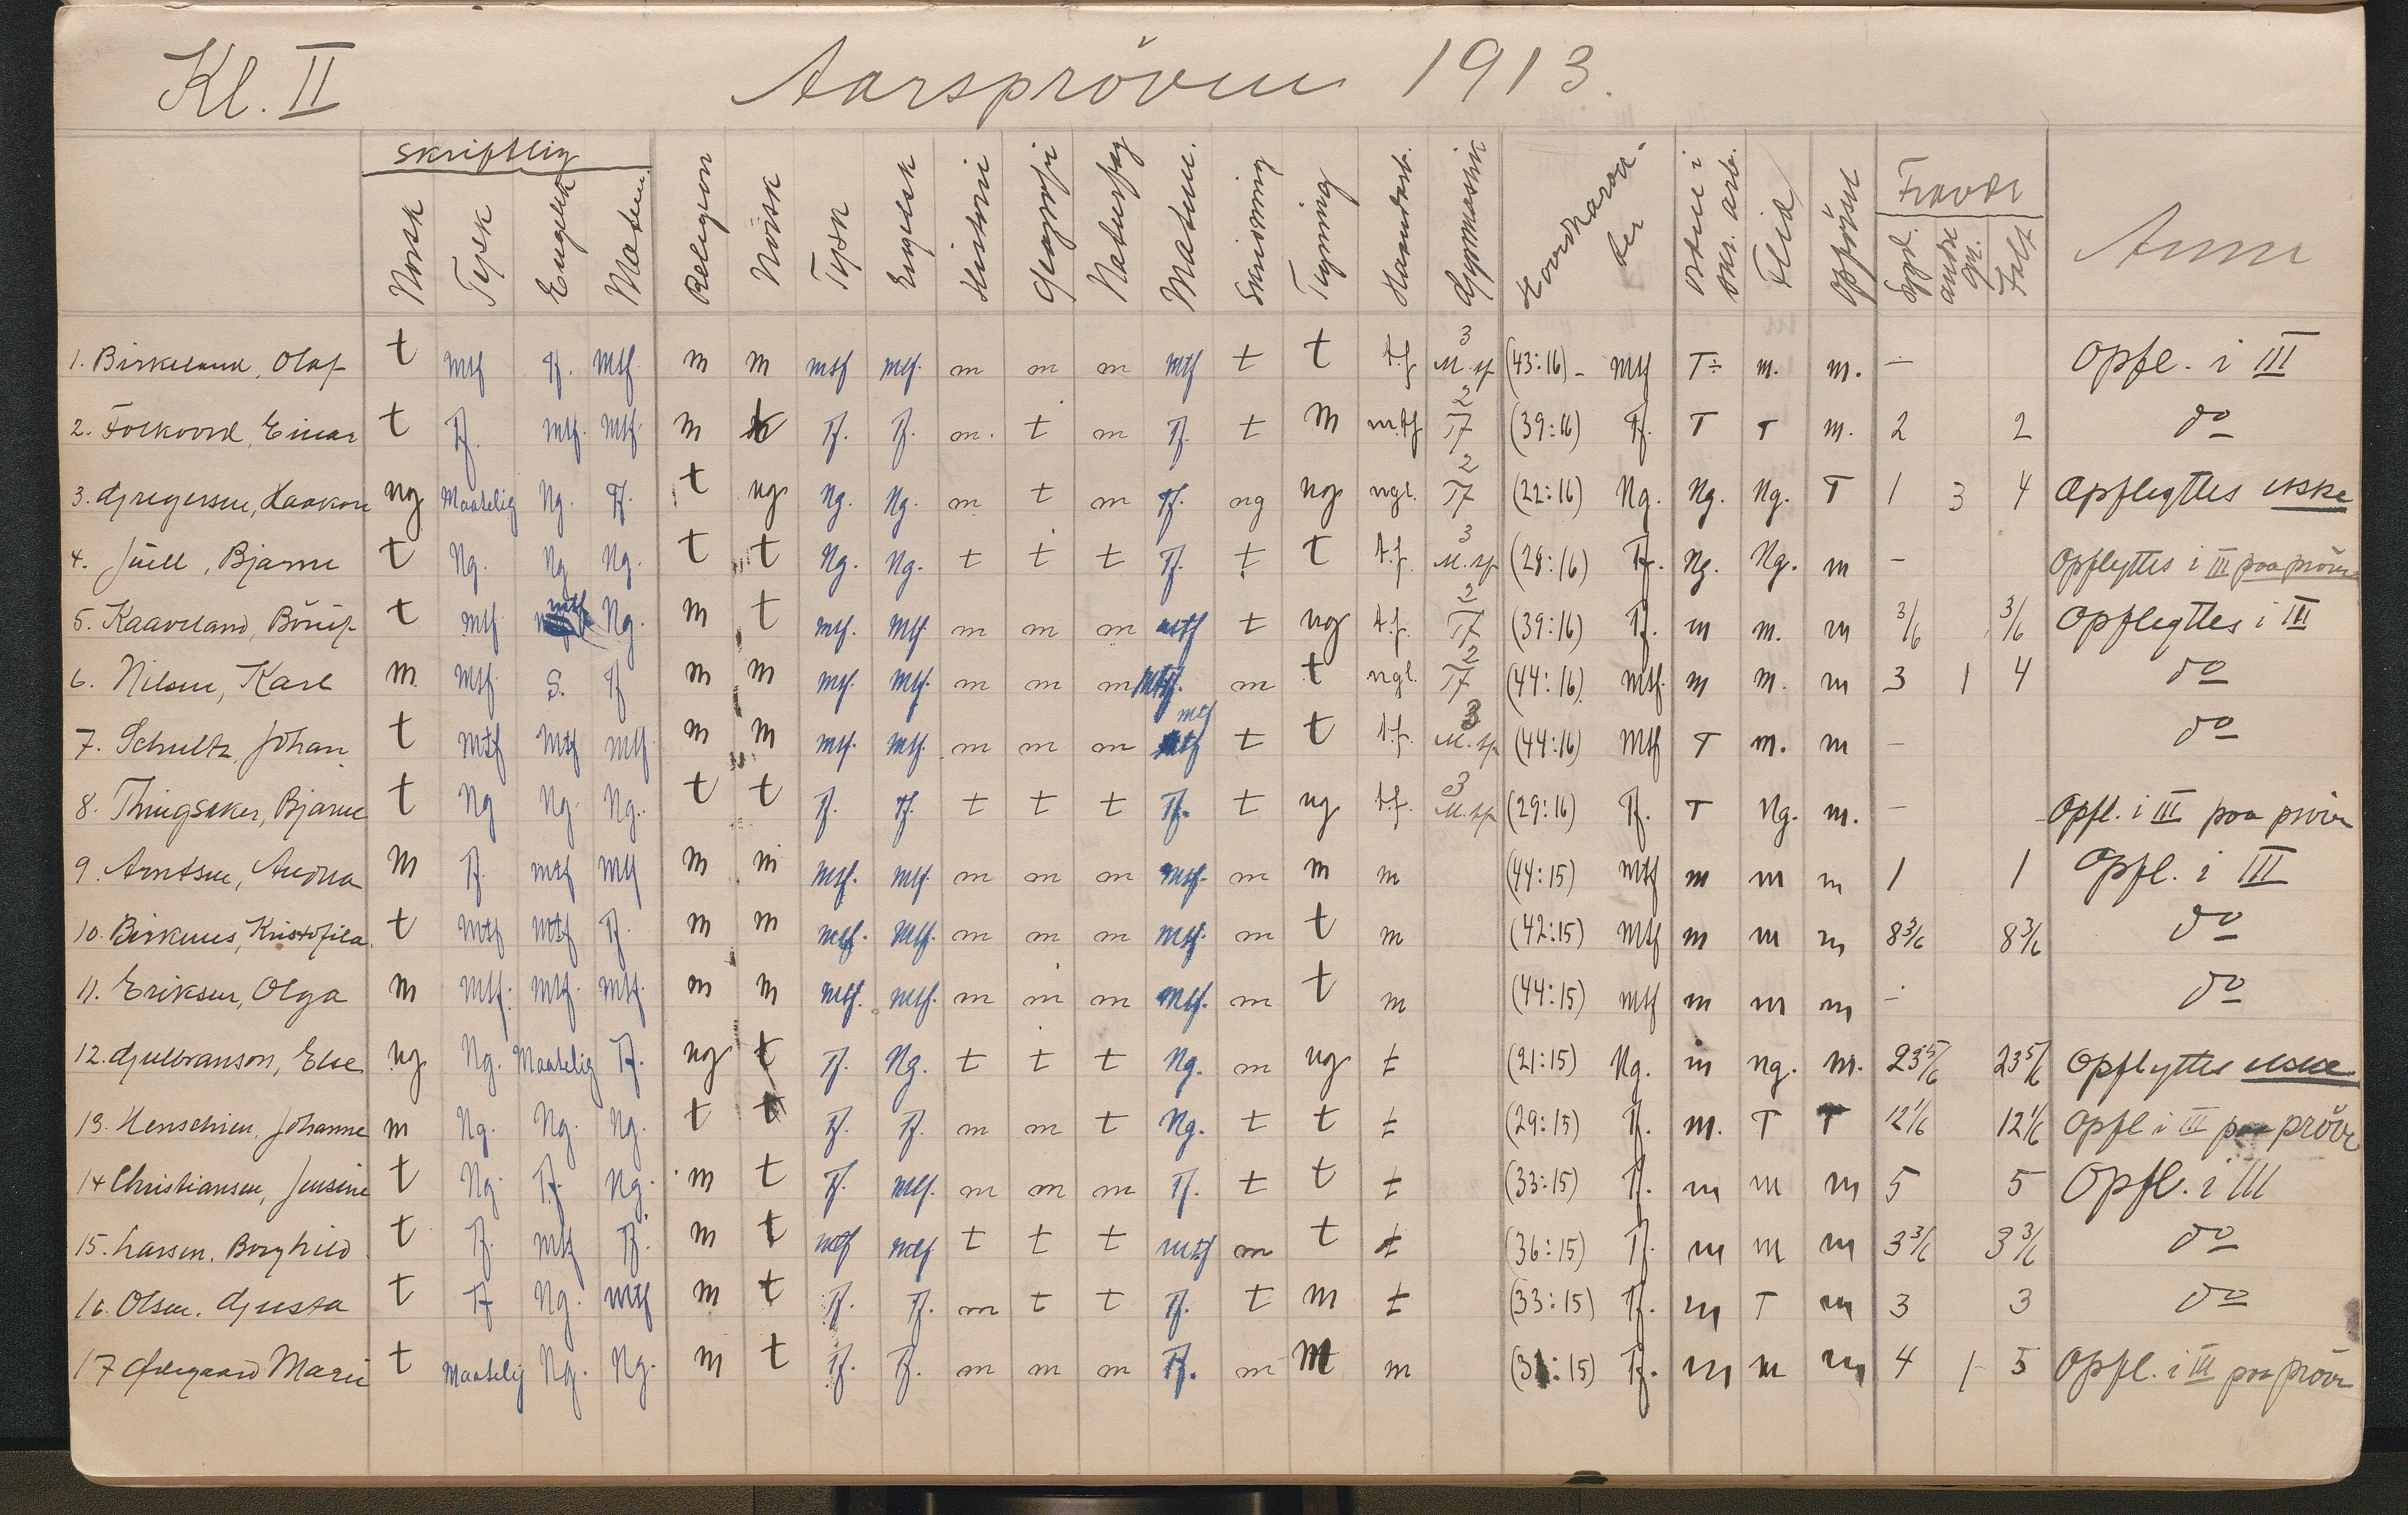 Kl. II Aarspröven 1913.
Skriftlig Fravær
Norsk Tysk Engelsk Matem. Religion Norsk Tysk Engelsk Historie Geografi Naturfag Matem. Skrivning Tegning Haandarb. Gymnastik Hovedkarakter Orden i skr. arb. Flid Opførsel Sygd. andre gr. Talt Anm
1. Birkeland, Olaf t mtf Tf. mtf. m m mtf mtf. m m m mtf t t t.f. 3 M.sf (43:16) - mtf T÷ m. m. - Opfl. i III
2. Folkvord, Einar t Tf. mtf. mtf. m t Tf. Tf. m. t m Tf. t m m.tf 2 Tf (39:16) Tf. T T m. 2 2 do
3. Gjregersen, Haakon ng Maatelig Ng. Tf. t ng Ng. Ng. m t m Tf. ng ng ngl. 2 Tf (22:16) Ng. Ng. Ng. T 1 3 4 Opflyttes ikke
4. Juell, Bjarne t Ng. Ng Ng. t t Ng. Ng. t t t Tf. t t t.f. 3 M.sf (28:16) Tf. Ng. Ng. m - Opflyttes i III paa pröve
5. Kaaveland, t mtf mtf Ng. m t mtf. mtf. m m m mtf t ng t.f. 2 Tf (39:16) Tf. m m. m 3/6 3/6 Opflyttes i III
6. Nilsen, Karl m. mtf. S. Tf m m mtf. mtf. m m m mtf. m t ngl. 2 Tf (44:16) mtf. m m. m 3 1 4 do
7. Schultz, Johan t mtf mtf mtf. m m mtf. mtf. m m m mtf t t t.f. 3 M.sf (44:16) mtf T m. m - do
8. Thingsaker, Bjarne t Ng Ng. Ng. t t Tf. Tf. t t t Tf. t ng t.f. 3 M.sf (29:16) Tf. T Ng. m. - Opfl. i III paa pröve
9. Arntsen, Andrea m Tf. mtf mtf m m mtf. mtf. m m m mtf. m m m (44:15) mtf m m m 1 1 Opfl. i III
10. Birknes, Kristofila t mtf mtf Tf. m m mtf. mtf. m m m mtf. m t m (42:15) mtf m m m 8 3/6 8 3/6 do
11. Eriksen, Olga m mtf. mtf. mtf. m m mtf. mtf. m m m mtf. m t m (44:15) mtf m m m - do
12. Gjulbranson, Else ng Ng. Maatelig Tf. ng t Tf. Ng. t t t Ng. m ng t (21:15) Ng. m ng. m. 23 5/6 23 5/6 Opflyttes ikke
13. Henschien, Johanne m Ng. Ng. Ng. t t Tf. Tf. m m t Ng. t t t (29:15) Tf. m. T T 12 1/6 12 1/6 Opfl i III paa pröve
14 Christiansen, Jensine t Ng. Tf. Ng. m t Tf. mtf. m m m Tf. t t t (33:15) Tf. m m m 5 5 Opfl. i III
15. Larsen, Borghild t Tf. mtf Tf. m t mtf mtf. t t t mtf m t t (36:15) Tf. m m m 3 3/6 3 3/6 do
16. Olsen. Gjusta t Tf Ng. mtf m t Tf. Tf. m t t Tf. t m t (33:15) Tf. m T m 3 3 do
17 Marie t Maatelig Ng. Ng. m t Tf. Tf. m m m Tf. m m m (31:15) Tf. m m m 4 1 5 Opfl. i III paa pröve